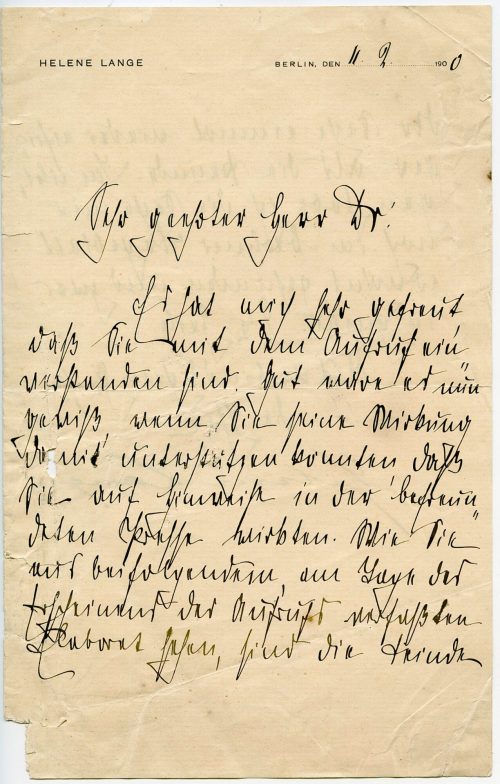 HELENE LANGE
BERLIN, DEN 11. 2. 1900
Sehr geehrter Herr Dr.
Es hat mich sehr gefreut
daß Sie mit dem Aufruf ein
verstanden sind. Gut wäre es nun
gewiß wenn Sie seine Wirkung
damit unterstützen könnten daß
Sie auf Hinweise in der befreun
deten Presse wirkten. Wie Sie
aus beifolgendem, am Tage des
Erscheinens des Aufrufs verfaßten
Elaborat sehen, sind die Feinde